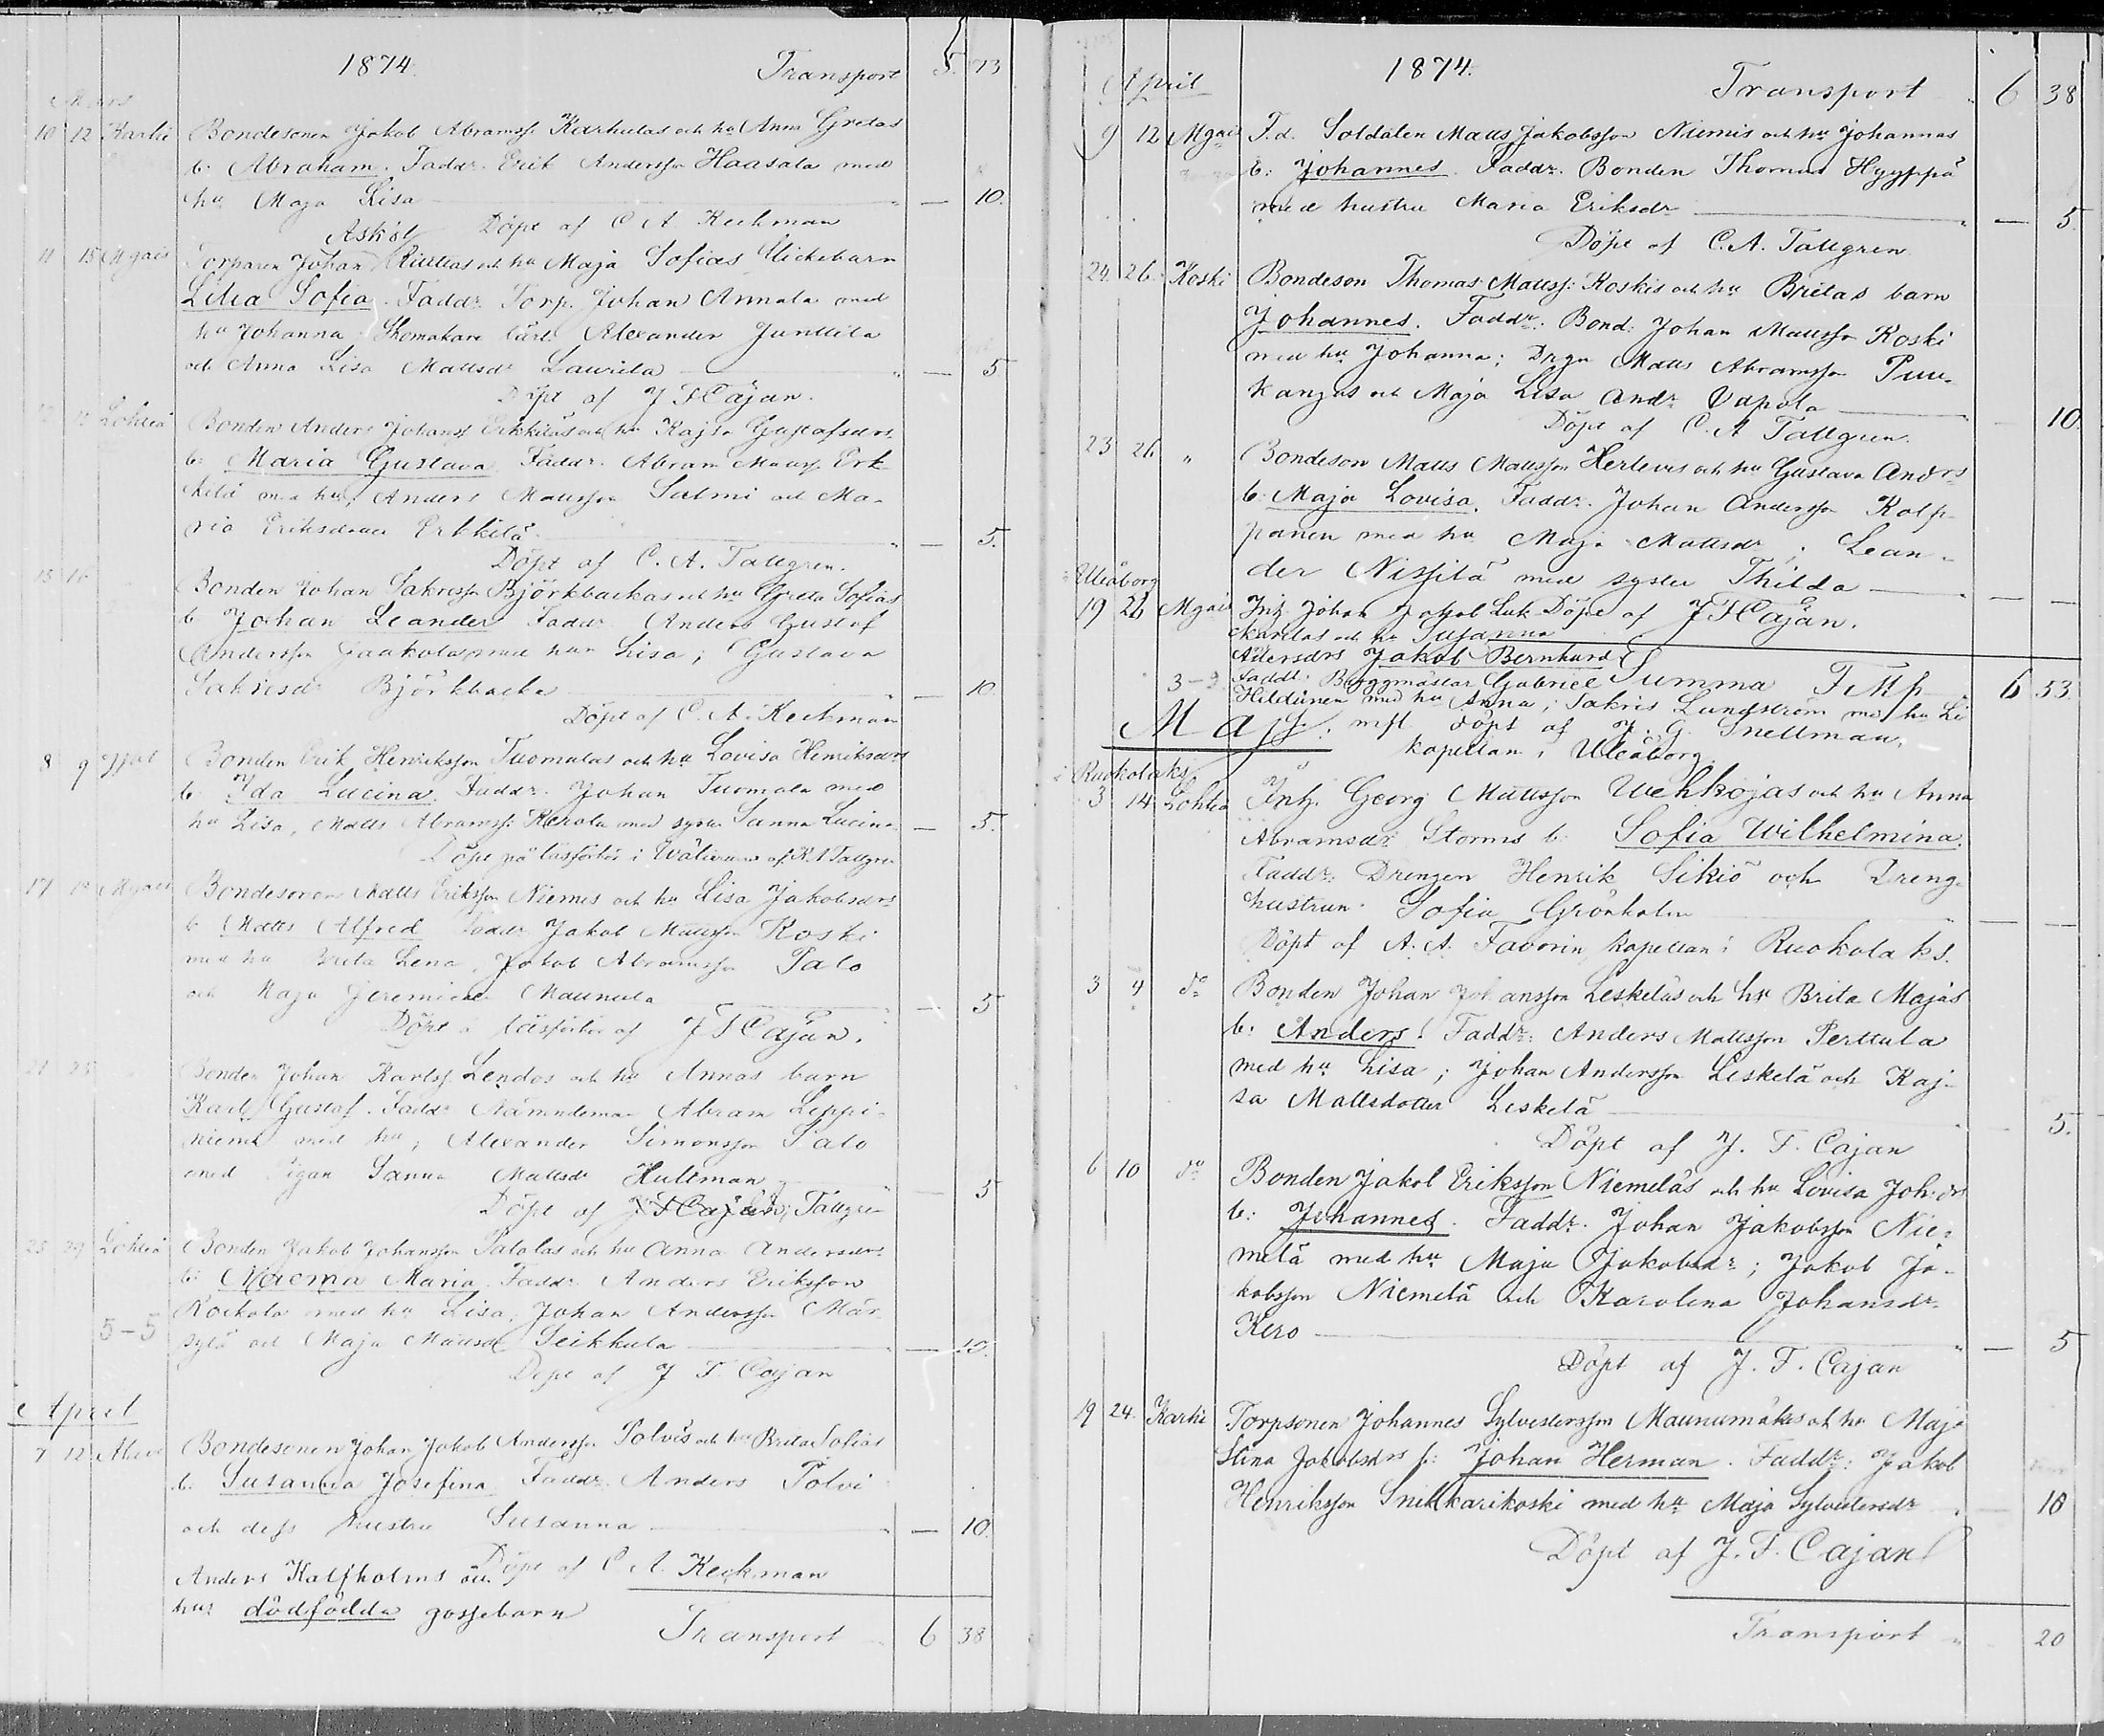 1874. Transport 5. 73
Mars
10 12 Karhi Bondesonen Jakob Abramss. Karhulas och hu Anna Gretas
b: Abraham. Faddr. Erik Andersson Haasala med
hu Maja Lisa — 10.
Döpt af C. A. Keckman
Asköl
11 15 Mgais Torparen Johan Riuttas och hu Maja Sofias flickebarn
Lilia Sofia. Faddr. Torp. Johan Annala med
hu Johanna, Skomakare lärl. Alexander Junttila
och Anna Lisa Mattsdr Laurila — 5
Döpt af J F Cajan.
15 Lohteå Bonden Anders Johanss. Erkkiläs och hu Kajsa Gustafsdrs
b: Maria Gustava. Faddr. Abram Matss. Erk-
kilä med hu; Anders Mattsson Salmi och Ma-
ria Eriksdotter Erkkilä — 5.
Döpt af C. A. Tallgren.
15 16 Bonden Johan Sakrisson Björkbackas och hu Greta Sofias
b. Johan Leander Faddr Anders Gustaf
Andersson Jaakola med hu Lisa; Gustava
Sakrisdr Björkbacka — 10
Döpt af C. A. Keckman
8 9 Bonden Erik Henriksson Tuomalas och hu Lovisa Henriksdrs
b. Ida Lucina. Faddr. Johan Tuomala med
hu Lisa, Matts Abramss: Kerola med syster Sanna Lucina — 5.
Döpt på läsförhör i af Tallgren
17 Mgais Bondesonen Matts Eriksson Niemis och hu Lisa Jakobsdrs
b. Matts Alfred Faddr Jakob Mattsson Koski
med hu Brita Lena, Jakob Abramsson Palo
och Maja Jeremiedr Maunula — 5
Döpt å läsförhör af J F Cajan.
21 25 Bonden Johan Karlss. Lendos och hu Annas barn
Karl Gustaf. Faddr Nämndeman Abram Leppi-
niemi med hu; Alexander Simonsson Palo
med Pigan Sanna Mattsdr Hultman — 5
Döpt af J F Cajan; Tallgren
25 29 Lohteå Bonden Jakob Johansson Patolas och hu Anna Andersdrs
b: Neiema Maria. Faddr. Anders Eriksson
Rockola med hu Lisa, Johan Andersson Mär-
sylä och Maja Mattsdr Seikkula — 10.
5–5
Döpt af J F. Cajan
April
7 12 Bondesonen Johan Jakob Andersson Polvis och hu Brita Sofias
b. Susanna Josefina Faddr. Anders Polvi
och dess hustru Susanna — 10.
Döpt af C A. Keckman
Anders Kalfholms och
hus dödfödda gossebarn
Transport 6 38
1874. Transport 6 38
April
9 12 Mgais F.d. Soldaten Matts Jakobsson Niemis och hu Johannas
b: Johannes. Faddr. Bonden Thomas Hyyppä
med hustru Maria Eriksdr — 5.
Döpt af C. A. Tallgren
24. 26. Koski Bondeson Thomas Matss: Koskis och hu Britas barn
Johannes. Faddr: Bond: Johan Mattsson Koski
med hu Johanna; Drgn Matts Abramsson Puu-
kangas och Maja Lisa Andr Vapola — 10.
Döpt af C. A Tallgren.
23 26 " Bondeson Matts Mattsson Herlevis och hu Gustava Andrs
b: Maja Lovisa. Faddr. Johan Andersson Kolp-
panen med hu Maja Mattsdr; Lean-
der Nissilä med syster Thilda — —
Döpt af J F Cajan.
i Uleåborg
19 26 Mgais Inh. Johan Jakob Luk-
karilas och hu Susanna
Adersdrs Jakob Bernhard
3–3 Faddr: Byggmästar Gabriel
Summa Fmk 6 53.
Hildunen med hu Anna; Sakris Lundström med hu Li
döpt af J. G. Snellman,
kapellan i Uleåborg
Maj
i Ruokolaks
3 14 Lohteå Inh. Georg Mattsson Wehkojas och hu Anna
Abramsdr Storms b. Sofia Wilhelmina.
Faddr: Drengen Henrik Sikiö och Dreng-
hustrun Sofia Grönholm — —
Döpt af A. A. Favorin kapellan i Ruokolaks.
3 4 do Bonden Johan Johansson Leskeläs och hu Brita Majas
b: Anders. Faddr: Anders Mattsson Perttula
med hu Lisa; Johan Andersson Leskelä och Kaj-
sa Mattsdotter Leskelä — 5.
Döpt af J. F. Cajan
6 10 do Bonden Jakob Eriksson Niemeläs och hu Lovisa Joh:drs
b: Johannes. Faddr. Johan Jakobsson Nie-
melä med hu Maja Jakobsdr; Jakob Ja-
kobsson Niemelä och Karolina Johansdr
Kero — 5
Döpt af J. F. Cajan
19 24. Karhi Torpsonen Johannes Sylvestersson Maunumäkis och hu Maja
Stina Jakobsdrs b: Johan Herman. Faddr: Jakob
Henriksson Snikkarikoski med hu Maja Sylvestersdr — 10
Döpt af J. F. Cajan
Transport 20